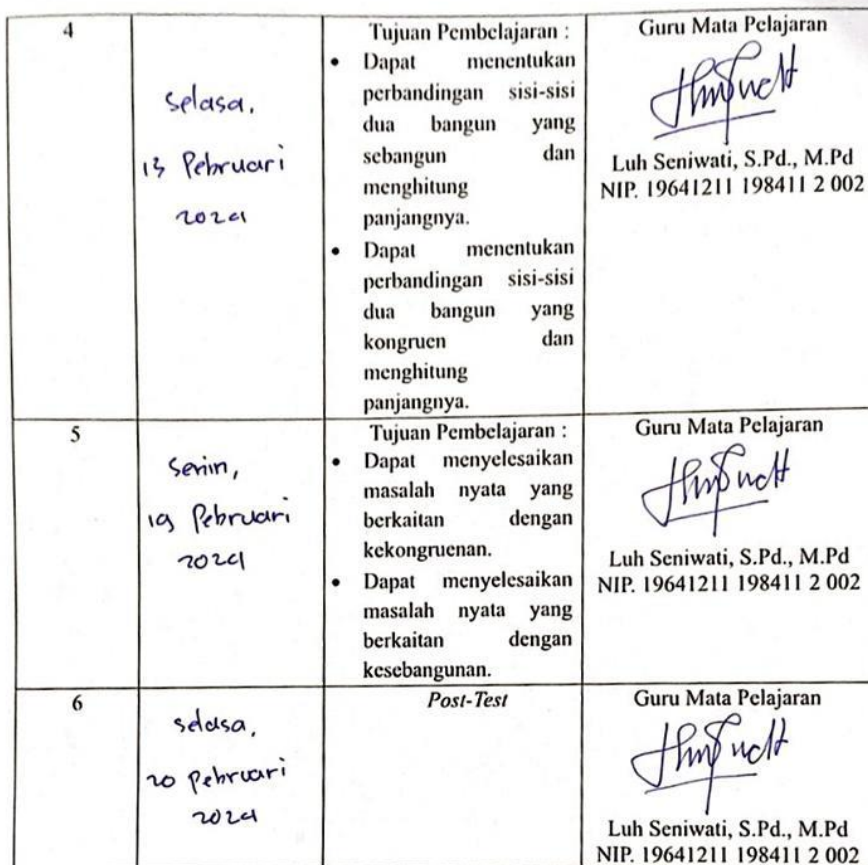 4
Selasa,
13 Pebruari
2024
Tujuan Pembelajaran :
• Dapat menentukan
perbandingan sisi-sisi
dua bangun yang
sebangun dan
menghitung
panjangnya.
• Dapat menentukan
perbandingan sisi-sisi
dua bangun yang
kongruen dan
menghitung
panjangnya.
Guru Mata Pelajaran
Luh Seniwati, S.Pd., M.Pd
NIP. 19641211 198411 2 002
5
Senin,
19 Pebruari
2024
Tujuan Pembelajaran :
• Dapat menyelesaikan
masalah nyata yang
berkaitan dengan
kekongruenan.
• Dapat menyelesaikan
masalah nyata yang
berkaitan dengan
kesebangunan.
Guru Mata Pelajaran
Luh Seniwati, S.Pd., M.Pd
NIP. 19641211 198411 2 002
6
Selasa,
20 Pebruari
2024
Post-Test
Guru Mata Pelajaran
Luh Seniwati, S.Pd., M.Pd
NIP. 19641211 198411 2 002